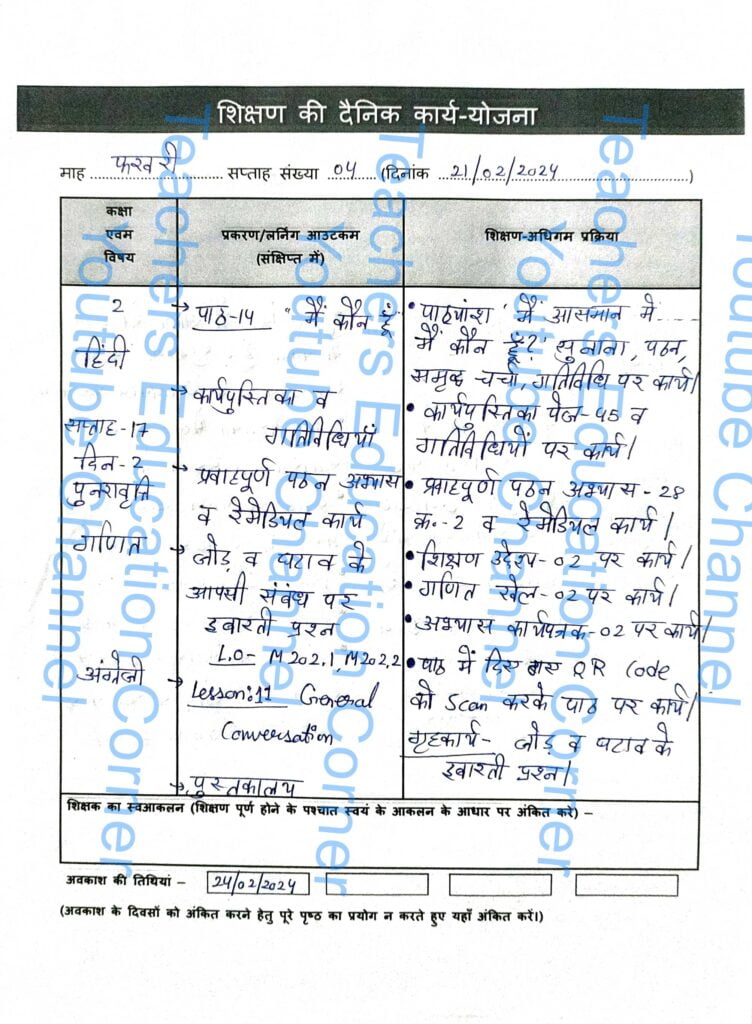 शिक्षण की दैनिक कार्य-योजना
माह फरवरी सप्ताह संख्या 04 (दिनांक 21/02/2024)
कक्षा
एवम
विषय
प्रकरण/लर्निंग आउटकम
(संक्षिप्त में)
शिक्षण-अधिगम प्रक्रिया
2
हिंदी
सप्ताह-17
दिन-2
पुनरावृत्ति
गणित
अंग्रेजी
→ पाठ-14 "मैं कौन हूँ
→ कार्यपुस्तिका व
गतिविधियां
→ प्रवाहपूर्ण पठन अभ्यास
व रेमेडियल कार्य
→ जोड़ व घटाव के
आपसी संबंध पर
इबारती प्रश्न
L.O- M202.1, M202.2
→ Lesson:11 General
Conversation
→ पुस्तकालय
• पाठ्यांश "मैं आसमान मे.....
मैं कौन हूँ?" सुनाना, पठन,
समूह चर्चा, गतिविधि पर कार्य।
• कार्यपुस्तिका पेज-45 व
गतिविधियों पर कार्य।
• प्रवाहपूर्ण पठन अभ्यास-28
क्र.-2 व रेमेडियल कार्य।
• शिक्षण उद्देश्य-02 पर कार्य।
• गणित खेल-02 पर कार्य।
• अभ्यास कार्यपत्रक-02 पर कार्य।
• पाठ में दिए गए QR Code
को Scan करके पाठ पर कार्य।
गृहकार्य- जोड़ व घटाव के
इबारती प्रश्न।
शिक्षक का स्वआकलन (शिक्षण पूर्ण होने के पश्चात स्वयं के आकलन के आधार पर अंकित करे) –
अवकाश की तिथियां – 24/02/2024
(अवकाश के दिवसों को अंकित करने हेतु पूरे पृष्ठ का प्रयोग न करते हुए यहाँ अंकित करें।)
Teachers Education Corner
Youtube Channel
Teachers Education Corner
Youtube Channel
Teachers Education Corner
Youtube Channel